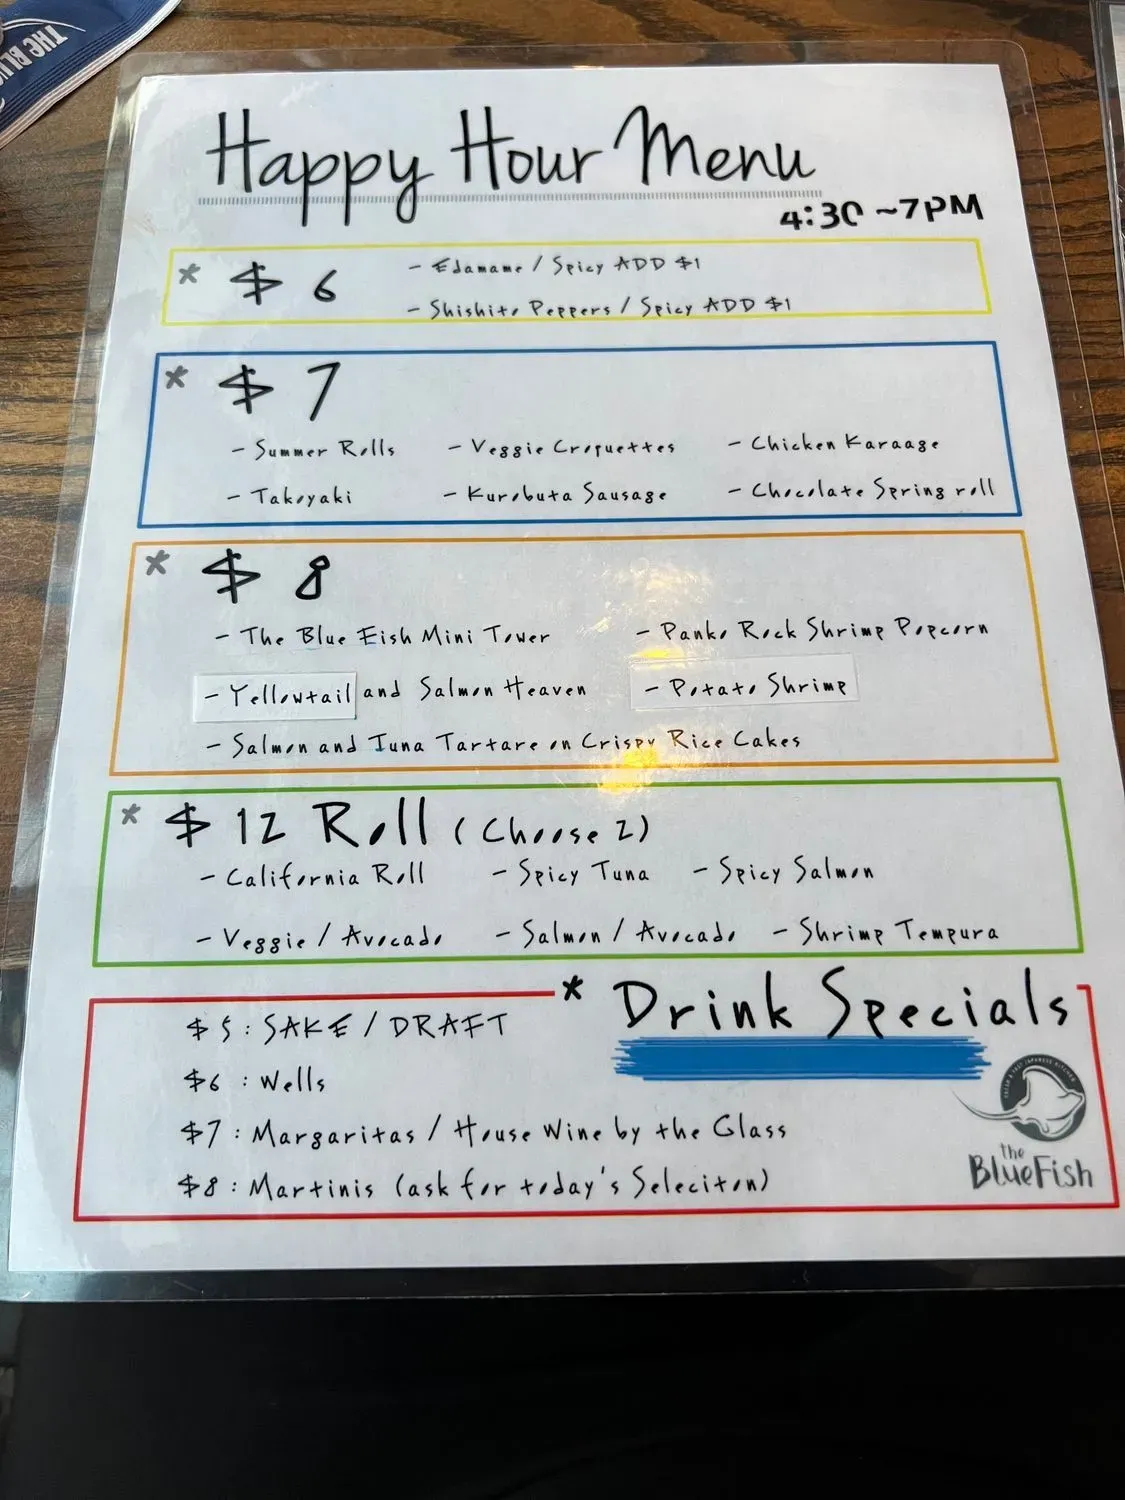 THE BLU
Happy Hour Menu
4:30 ~7PM
* $ 6
- Edamame / Spicy ADD $1
- Shishito Peppers / Spicy ADD $1
* $ 7
- Summer Rolls - Veggie Croquettes - Chicken Karaage
- Takoyaki - Kurobuta Sausage - Chocolate Spring roll
* $ 8
- The Blue Fish Mini Tower - Panko Rock Shrimp Popcorn
- Yellowtail and Salmon Heaven - Potato Shrimp
- Salmon and Tuna Tartare on Crispy Rice Cakes
* $ 12 Roll (Choose 2)
- California Roll - Spicy Tuna - Spicy Salmon
- Veggie / Avocado - Salmon / Avocado - Shrimp Tempura
* Drink Specials
$5 : SAKE / DRAFT
$6 : Wells
$7 : Margaritas / House Wine by the Glass
$8 : Martinis (ask for today's Seleciton)
the
BlueFish